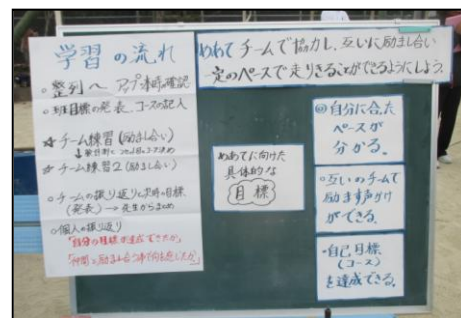 学習の流れ
○整列〜アップ、本時の確認
○班目標の発表、コースの記入
☆チーム練習(励まし合い)
☆チーム練習2(励まし合い)
○チームの振り返りと次時の目標
(発表)→先生からまとめ
○個人の振り返り
「自分の目標が達成できたか」
「仲間と励まし合う中で何を感じたか」
めあて チームで協力し、互いに励まし合い
一定のペースで走りきることができるようにしよう。
めあてに向けた
具体的な
目標
◎自分に合った
ペースが
分かる。
・互いのチームで
励ます声かけ
ができる。
・自己目標
(コース)
を達成できる。